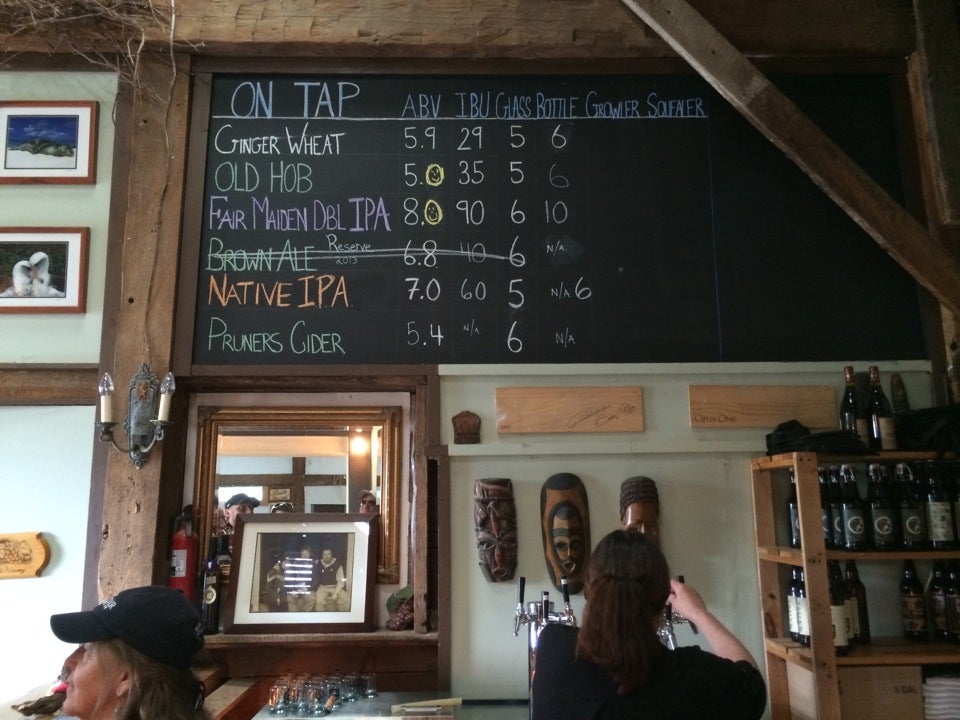 ON TAP ABV IBU GLASS BOTTLE GROWLER SQUEALER
GINGER WHEAT 5.9 29 5 6
OLD HOB 5.0 35 5 6
FAIR MAIDEN DBL IPA 8.0 90 6 10
BROWN ALE Reserve 2013 6.8 40 6 N/A
NATIVE IPA 7.0 60 5 N/A 6
PRUNERS CIDER 5.4 N/A 6 N/A
OPUS ONE